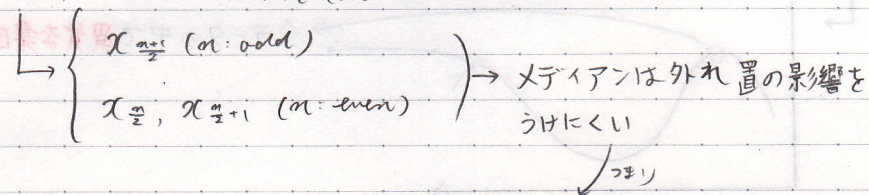 x_{\frac{n+1}{2}} (n: odd)
x_{\frac{n}{2}}, x_{\frac{n}{2}+1} (n: even)
→ メディアンは外れ置の影響を
うけにくい
つまり